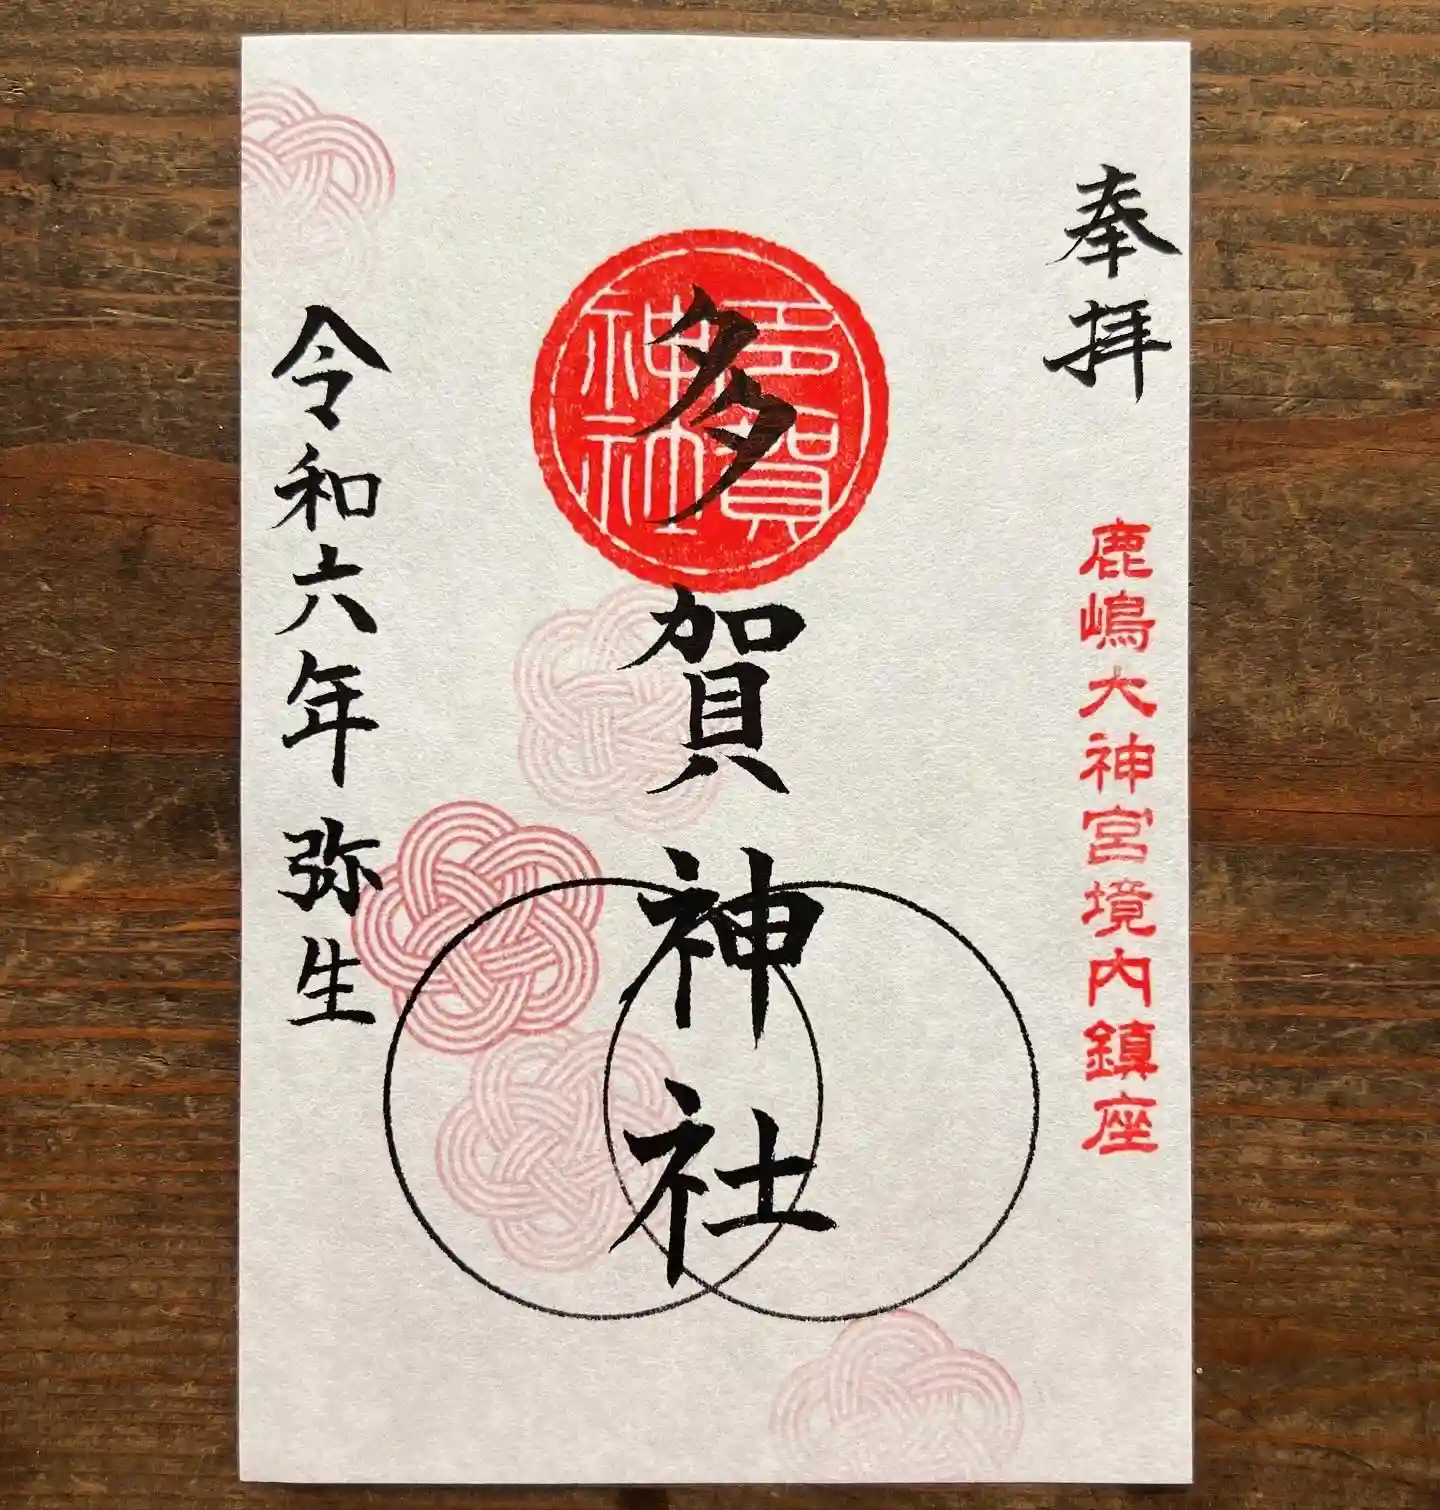 奉拝
鹿嶋大神宮境内鎮座
多賀神社
多賀
神社
令和六年 弥生